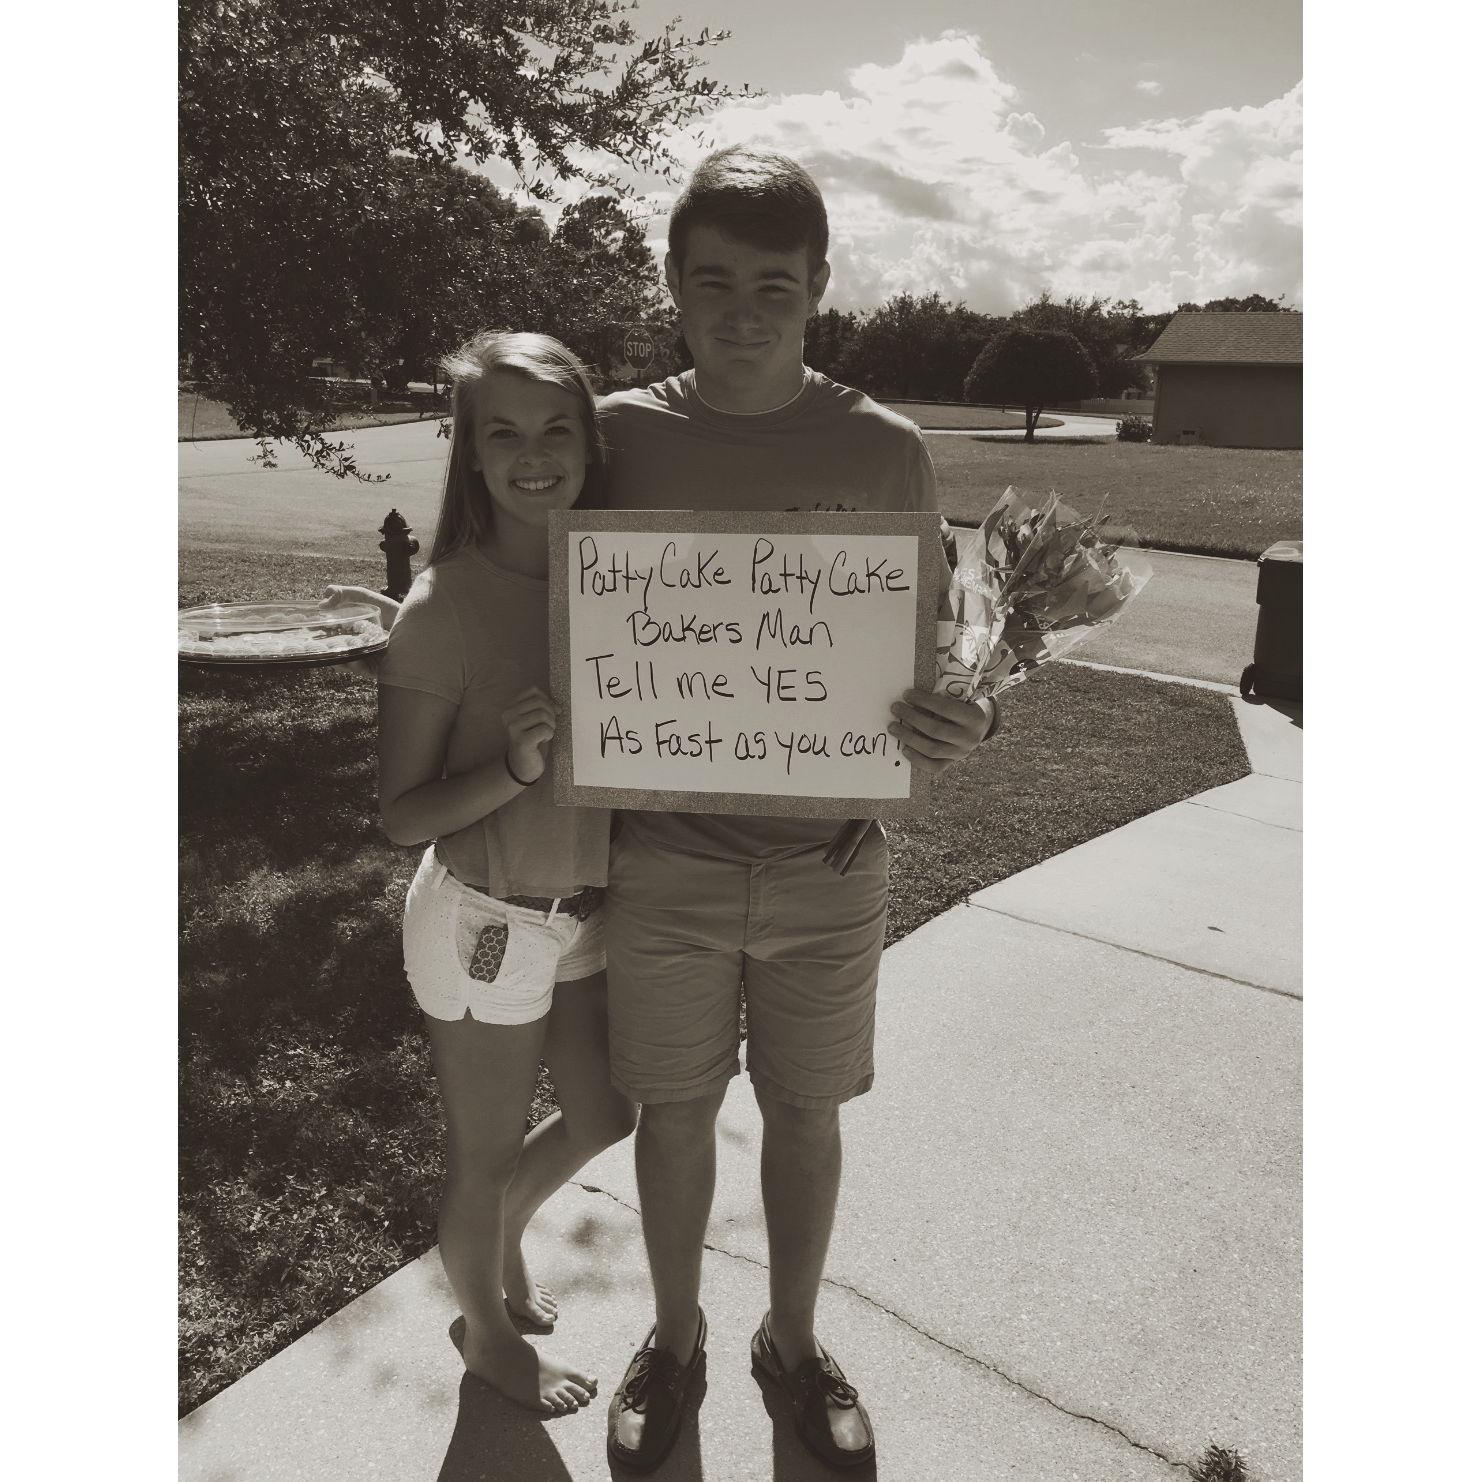 STOP
Patty Cake Patty Cake
Bakers Man
Tell me YES
As Fast as you can!